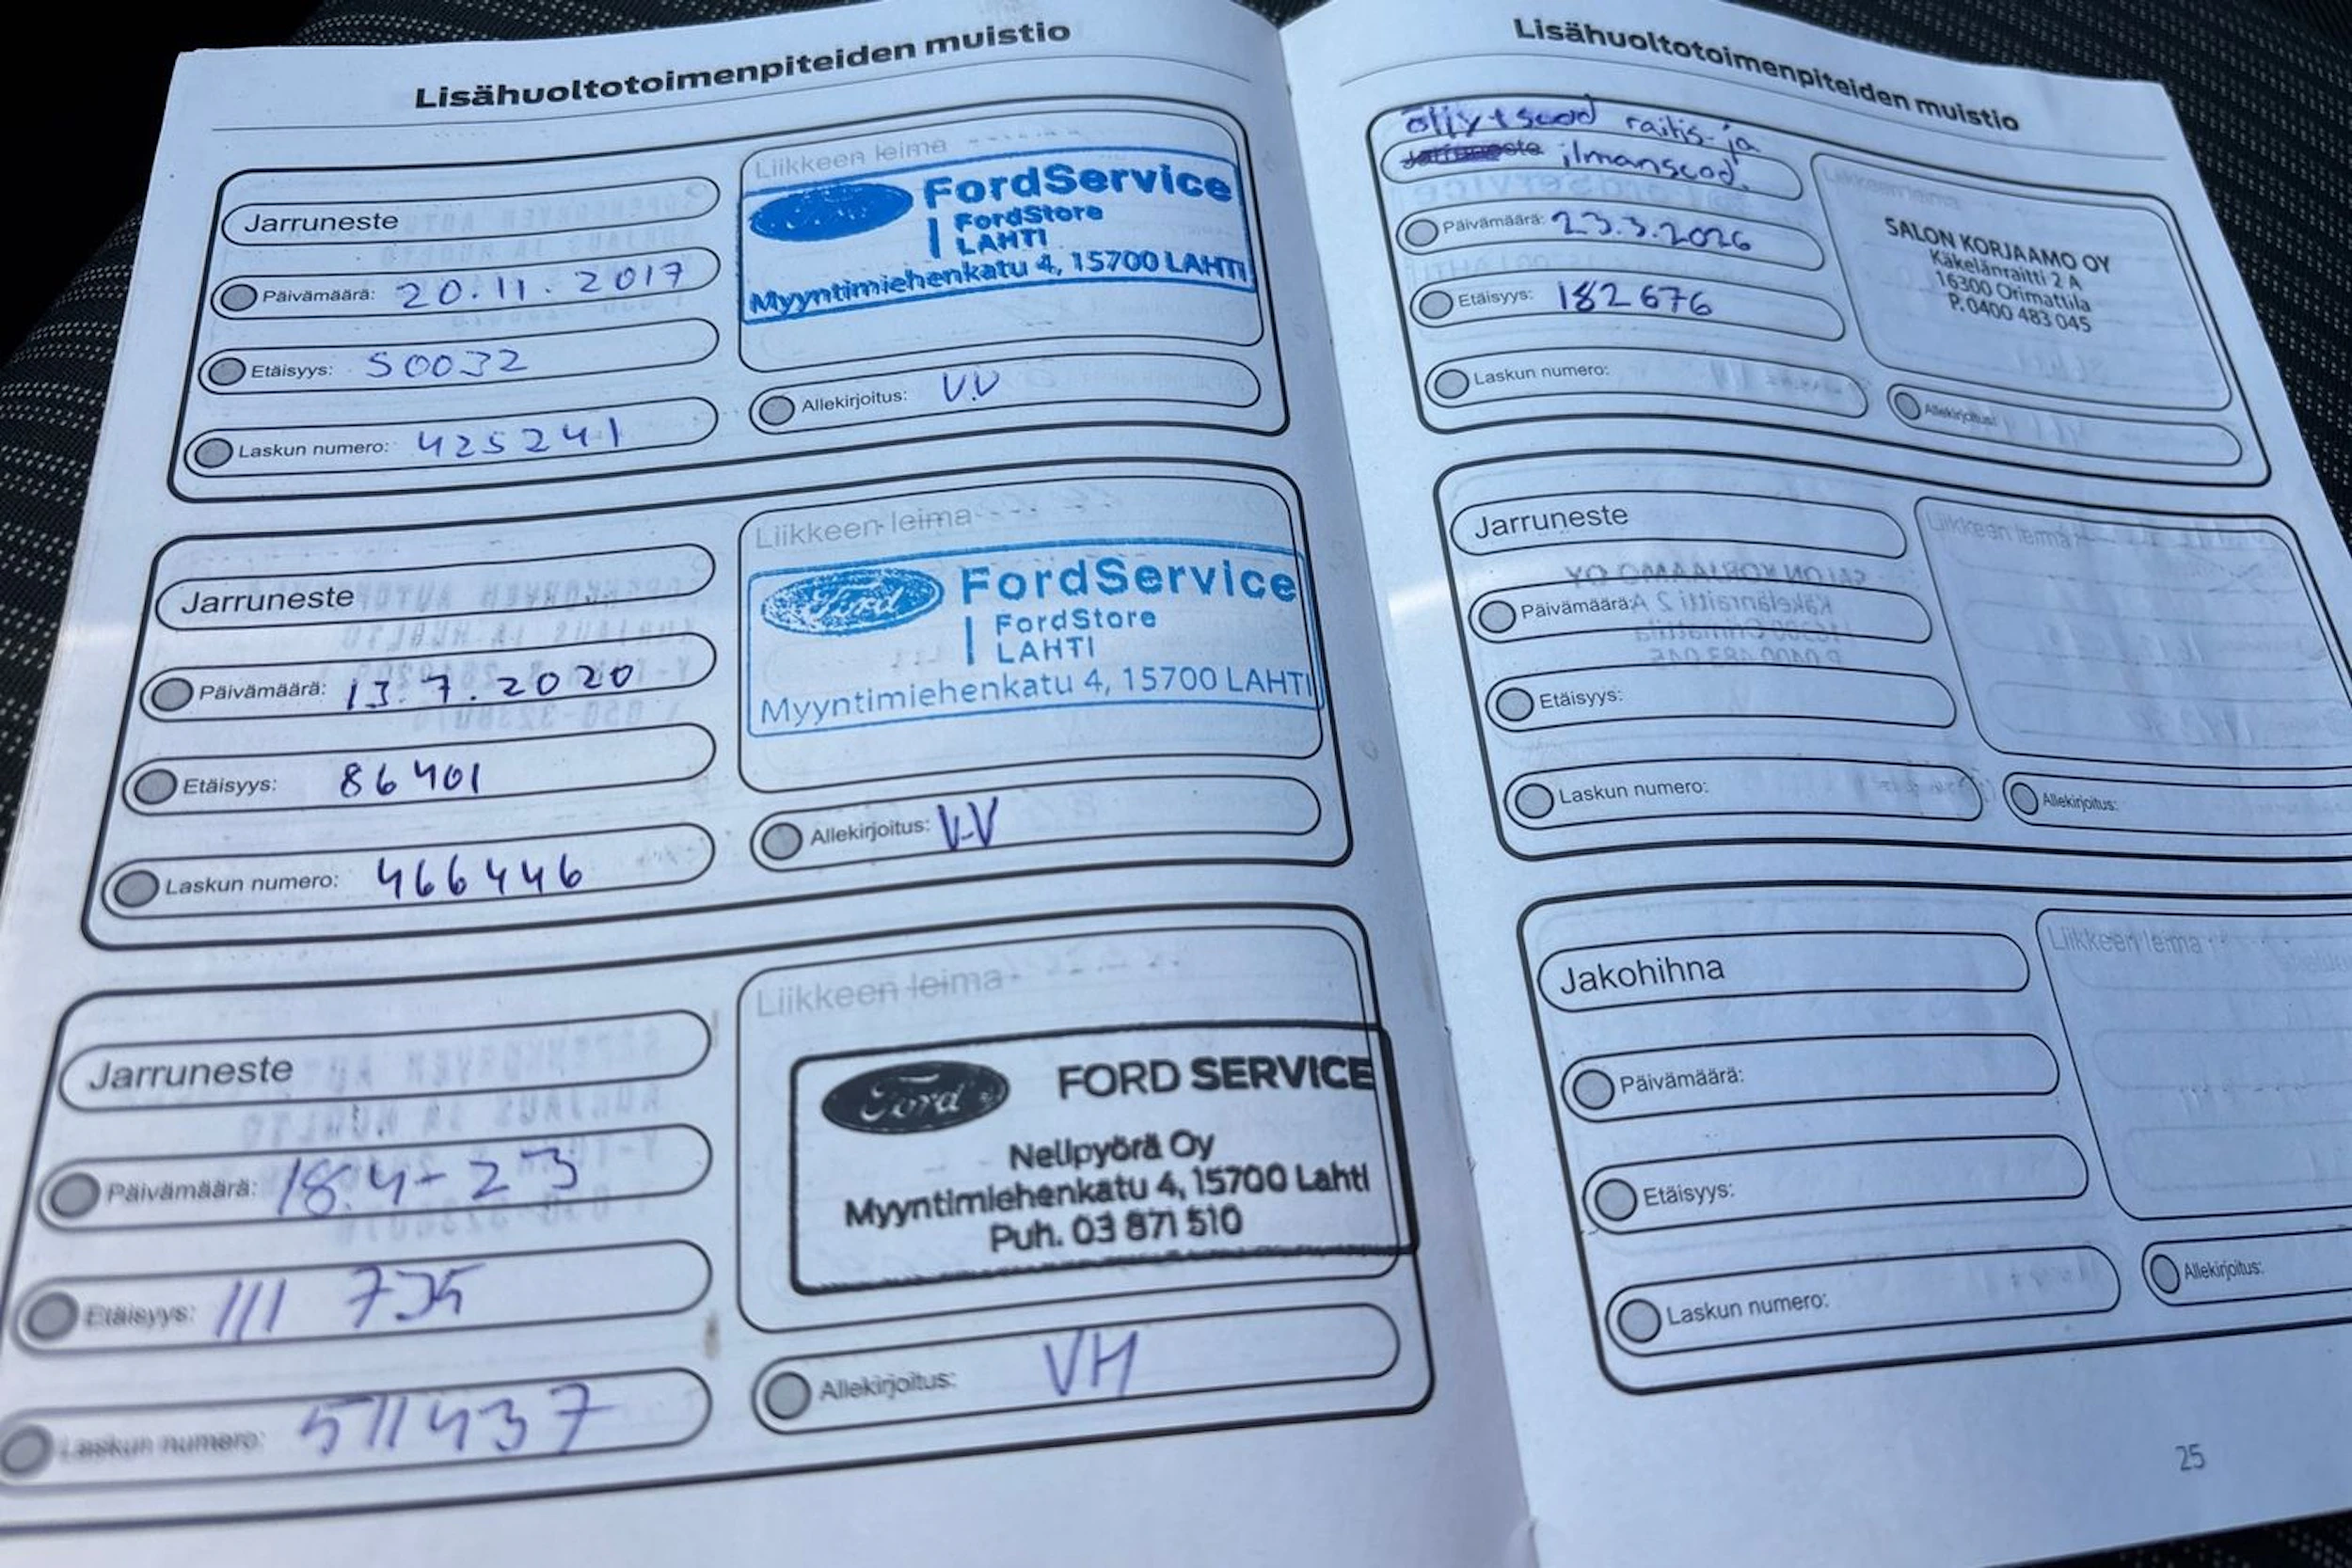 Lisähuoltotoimenpiteiden muistio
Jarruneste
Päivämäärä: 20.11.2017
Etäisyys: 50032
Laskun numero: 425241
Liikkeen leima
FordService
FordStore
LAHTI
Myyntimiehenkatu 4, 15700 LAHTI
Allekirjoitus: V.V
Jarruneste
Päivämäärä: 13.7.2020
Etäisyys: 86401
Laskun numero: 466446
Liikkeen leima
Ford FordService
FordStore
LAHTI
Myyntimiehenkatu 4, 15700 LAHTI
Allekirjoitus: V-V
Jarruneste
Päivämäärä: 18.4-23
Etäisyys: 111 735
Laskun numero: 511437
Liikkeen leima
Ford FORD SERVICE
Nelipyörä Oy
Myyntimiehenkatu 4, 15700 Lahti
Puh. 03 871 510
Allekirjoitus: VH
Lisähuoltotoimenpiteiden muistio
öljy+suod raitis- ja
Jarruneste ilmansuod.
Päivämäärä: 23.3.2026
Etäisyys: 182676
Laskun numero:
Liikkeen leima
SALON KORJAAMO OY
Käkelänraitti 2 A
16300 Orimattila
P. 0400 483 045
Allekirjoitus:
Jarruneste
Päivämäärä:
Etäisyys:
Laskun numero:
Liikkeen leima
Allekirjoitus:
Jakohihna
Päivämäärä:
Etäisyys:
Laskun numero:
Liikkeen leima
Allekirjoitus:
25